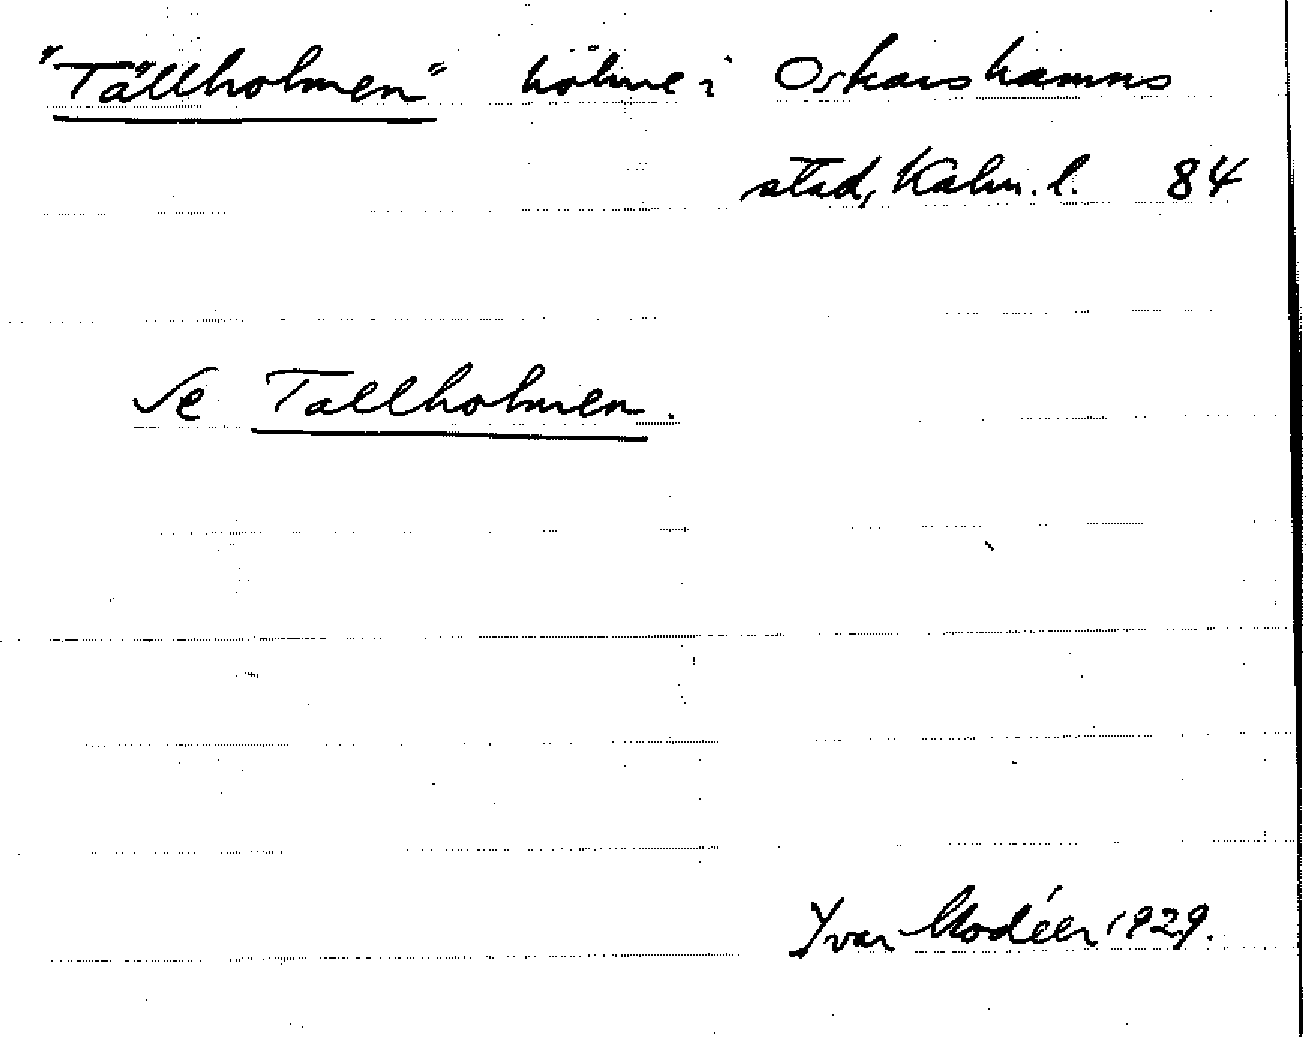 "Tällholmen" holme i Oskarshamns
stad, Kalm. l. 84
Se Tallholmen.
Yvar Modéer 1929.